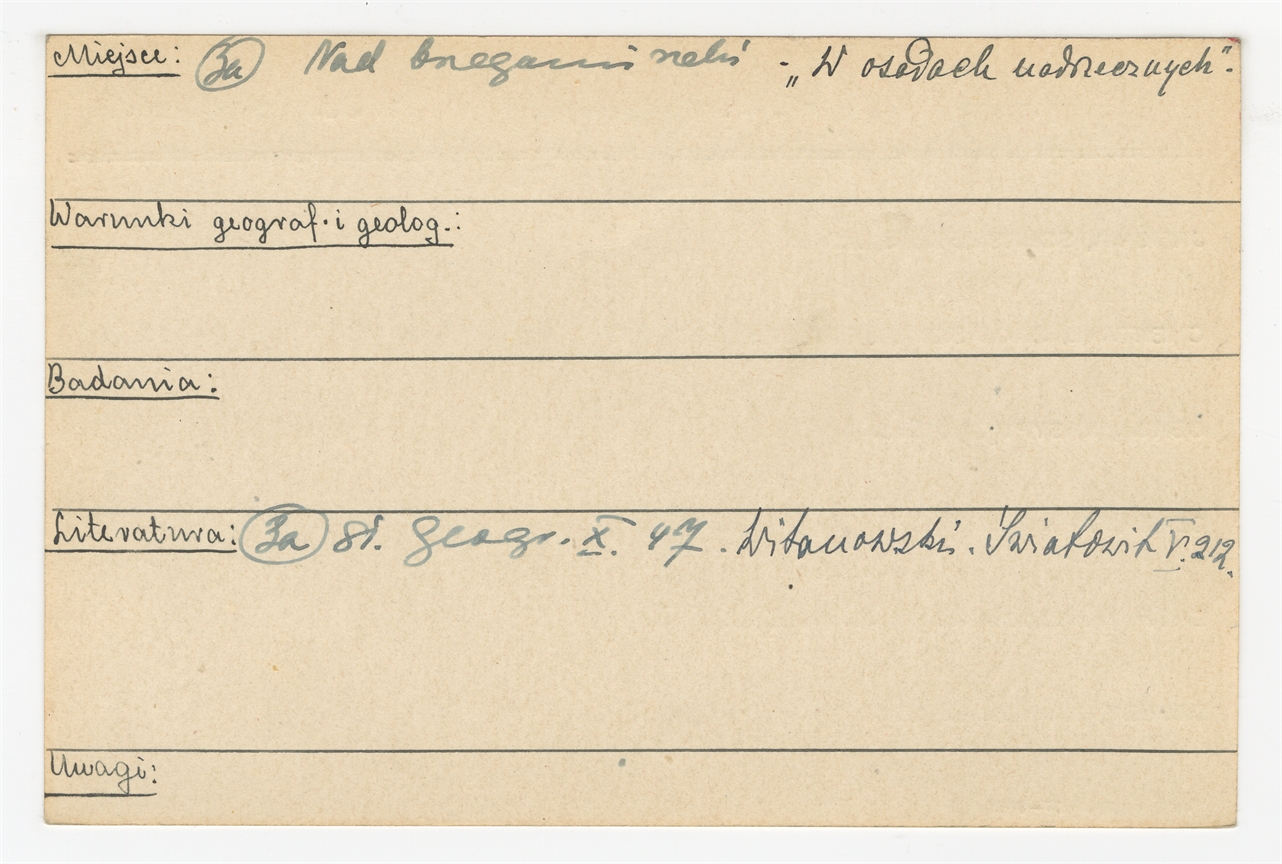 Miejsce: 3a Nad brzegami rzeki - „W osadach nadrzecznych".
Warunki geograf. i geolog.:
Badania:
Literatura: 3a Sł. geogr. X. 47. Witanowski. Światowit VI. 212.
Uwagi: